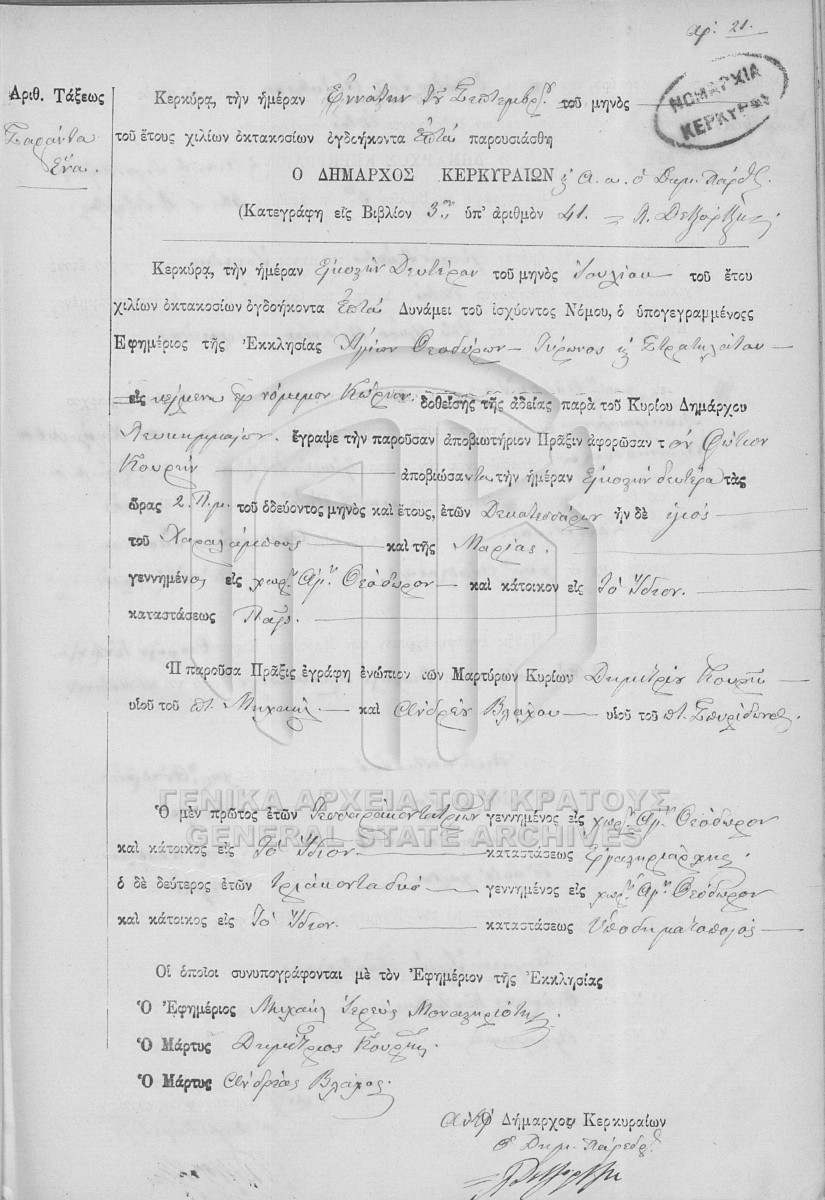 αρ. 21.
ΝΟΜΑΡΧΙΑ
ΚΕΡΚΥΡΑΣ
Αριθ. Τάξεως
Σαράντα
Ένα.
Κερκύρᾳ, τὴν ἡμέραν Ἐννάτην τοῦ Σεπτεμβρ. τοῦ μηνὸς
τοῦ ἔτους χιλίων ὀκτακοσίων ὀγδοήκοντα Ἑπτά παρουσιάσθη
Ο ΔΗΜΑΡΧΟΣ ΚΕΡΚΥΡΑΙΩΝ ὁ Δημ. Πάρεδ.
(Κατεγράφη εἰς Βιβλίον 3ον ὑπ' ἀριθμὸν 41.
Κερκύρᾳ, τὴν ἡμέραν Εἰκοστήν Δευτέραν τοῦ μηνὸς Ἰουλίου τοῦ ἔτου
χιλίων ὀκτακοσίων ὀγδοήκοντα Ἑπτά Δυνάμει τοῦ ἰσχύοντος Νόμου, ὁ ὑπογεγραμμένος
Ἐφημέριος τῆς Ἐκκλησίας Ἁγίων Θεοδώρων Τύρωνος κ Στρατηλάτου
εἰς δοθείσης τῆς ἀδείας παρὰ τοῦ Κυρίου Δημάρχου
Λευκιμμαίων. ἔγραψε τὴν παροῦσαν ἀποβιωτήριον Πρᾶξιν ἀφορῶσαν τὸν Φώτιον
Κουρήν ἀποβιώσαντα τὴν ἡμέραν Εἰκοστήν δευτέρα τὰς
ὥρας 2. Π.μ. τοῦ ὁδεύοντος μηνὸς καὶ ἔτους, ἐτῶν Δεκατεσσάρων ἦν δὲ υἱός
τοῦ Χαραλάμπους καὶ τῆς Μαρίας.
γεννημένος εἰς χωρ. Ἁγ. Θεόδωρον καὶ κάτοικον εἰς Τὸ Ἴδιον.
καταστάσεως Παῖς.
Ἡ παροῦσα Πρᾶξις ἐγράφη ἐνώπιον τῶν Μαρτύρων Κυρίων Δημητρίου Κουρῆ
υἱοῦ τοῦ πτ. Μιχαήλ καὶ Ἀνδρέου Βλάχου υἱοῦ τοῦ πτ. Σπυρίδωνος
ΓΕΝΙΚΑ ΑΡΧΕΙΑ ΤΟΥ ΚΡΑΤΟΥΣ
GENERAL STATE ARCHIVES
Ὁ μὲν πρῶτος ἐτῶν Τεσσαρακοντατριῶν γεννημένος εἰς χωρ. Ἁγ. Θεόδωρον
καὶ κάτοικος εἰς Τὸ Ἴδιον καταστάσεως
ὁ δὲ δεύτερος ἐτῶν τριάκονταδύο γεννημένος εἰς χωρ. Ἁγ. Θεόδωρον
καὶ κάτοικος εἰς Τὸ Ἴδιον καταστάσεως Ὑποδηματοποιός
Οἱ ὁποῖοι συνυπογράφονται μὲ τὸν Ἐφημέριον τῆς Ἐκκλησίας
Ὁ Ἐφημέριος Μιχαήλ Ἱερεύς
Ὁ Μάρτυς Δημήτριος Κουρῆς
Ὁ Μάρτυς Ἀνδρέας Βλάχος.
Δήμαρχος Κερκυραίων
ὁ Δημ. Πάρεδρ.